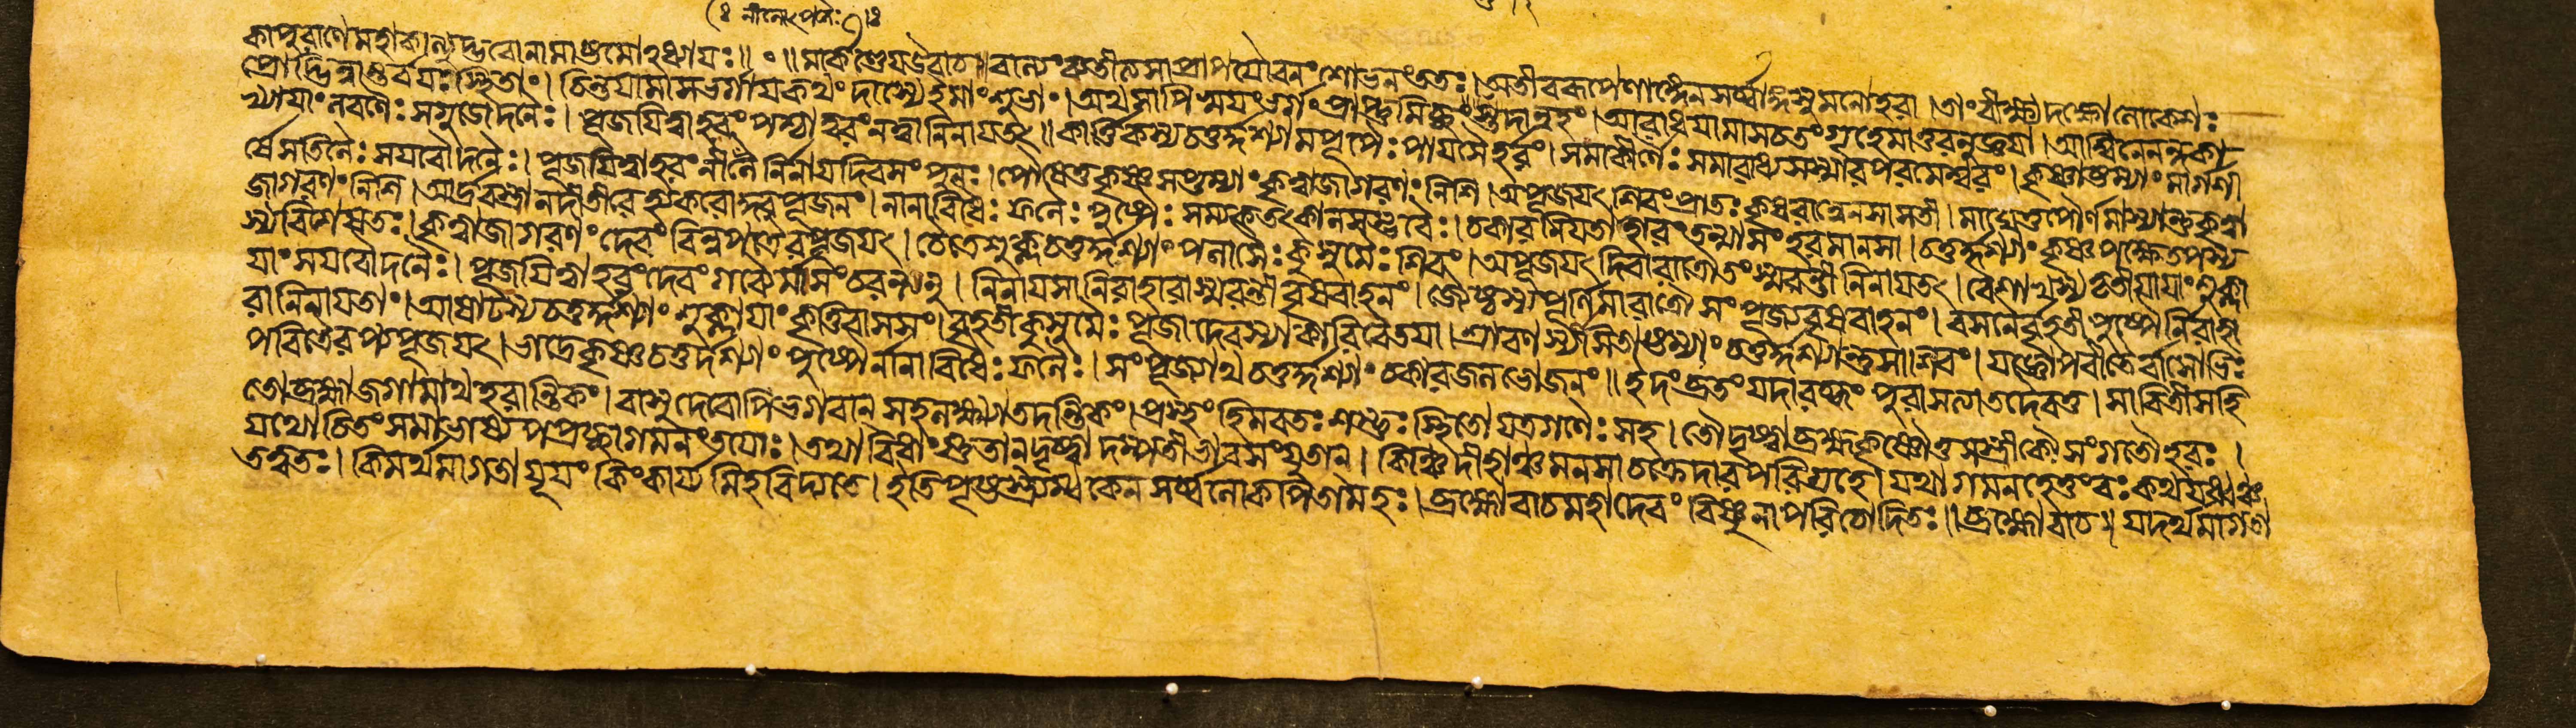 নীলোৎপলৈঃ
কাপুরাণে মহাকাল্যুদ্ভবোনামাষ্টমোঽধ্যায়ঃ॥ ॰ ॥ মার্কণ্ডেয়উবাচ॥ বাল্যং ব্যতীত্যসাপ্রাপযৌবনং শোভনংততঃ। অতীবরূপেণাঙ্গেনসর্ব্বাঙ্গসুমনোহরা। তাংবীক্ষ্যদক্ষোলোকেশঃ
প্রোদ্ভিন্নান্তর্বয়ঃস্থিতাং। চিন্তয়ামাসভর্গায়কথং দাস্যেইমাংশুভাং। অথসাপিস্বয়ংভর্গং প্রাপ্তুমিচ্ছুস্তদান্বহং। আরাধয়ামাসচতংগৃহেমাতুরনুজ্ঞয়া। আশ্বিনেনন্দকা
খ্যায়াং লবণৈঃ সগুডৌদনৈঃ। পূজয়িত্বাহরং পশ্চাদ্বরংনত্বানিনায়তৎ॥ কার্ত্তিকস্যচতুর্দ্দশ্যামপূপৈঃ পায়সৈর্হরং। সমাকীর্ণৈঃ সমারাধ্যসস্মারপরমেশ্বরং। কৃষ্ণাষ্টম্যাং মার্গশী
র্ষেসতিলৈঃ সযবৌদনৈঃ। পূজয়িত্বাহরং নীলৈর্নিনায়দিবসং পুনঃ। পৌষেতুকৃষ্ণসপ্তম্যাংকৃত্বাজাগরণং নিশি। অপূজয়ৎ শিবংপ্রাতঃকৃষরান্নেনসাসতী। মাঘেতুপৌর্ণমাস্যান্তুকৃত্বা
জাগরণং নিশি। আর্দ্রবস্ত্রানদীতীরেহ্যকরোদ্ধরপূজনং। নানাবিধৈঃ ফলৈঃ পুষ্পৈঃ সম্যক্তৎকালসম্ভবৈঃ। চকারনিয়তাহারংতন্মাসংহরমানসা। চতুর্দ্দশ্যাংকৃষ্ণপক্ষেতপস্য
স্যবিশেষতঃ। কৃত্বাজাগরণং দেবং বিল্বপত্রৈরপূজয়ৎ। চৈত্রেশুক্লচতুর্দ্দশ্যাং পলাশৈঃ কুসুমৈঃ শিবং। অপূজয়ৎ দিবারাত্রৌতংস্মরন্তীনিনায়তৎ। বৈশাখস্যতৃতীয়ায়াংশুক্লা
য়াং সযবৌদনৈঃ। পূজয়িত্বাহরংদেবং গব্যৈর্মাসংচরন্ত্যনু। নিনায়সানিরাহারাস্মরন্তীবৃষবাহনং। জ্যৈষ্ঠস্যপূর্ণিমারাত্রৌ সংপূজ্যবৃষবাহনং। বসনৈর্বৃহতীপুষ্পৈর্নিরাহা
রানিনায়তাং। আষাঢস্যচতুর্দ্দশ্যাং শুক্লায়াং কৃত্তিবাসসং। বৃহতীকুসুমৈঃ পূজাদেবস্যাকারিবৈতয়া। শ্রাবণস্যসিতাষ্টম্যাং চতুর্দ্দশ্যান্তুসাশিবং। যজ্ঞোপবীতৈর্বাসোভিঃ
পবিত্রৈরপ্যপূজয়ৎ। ভাদ্রেকৃষ্ণচতুর্দশ্যাং পুষ্পৈর্নানাবিধৈঃ ফলৈঃ। সংপূজ্যাথচতুর্দ্দশ্যাং চকারজলভোজনং॥ ইদং ব্রতংযদারব্ধং পুরাসত্যাতদৈবতু। সাবিত্রীসহি
তোব্রহ্মাজগামাথহরান্তিকং। বাসুদেবোপিভগবান্ সহলক্ষ্ম্যাতদন্তিকং। প্রস্থংহিমবতঃ শম্ভুঃস্থিতো যত্রগণৈঃ সহ। তৌদৃষ্ট্বাব্রহ্মকৃষ্ণৌতুসস্ত্রীকৌসংগতৌহরঃ।
যথোচিতংসমাভাষ্যপপ্রচ্ছাগমনংতয়োঃ। তথাবিধাংস্তুতানদৃষ্ট্বাদম্পতীভাবসংযুতান্। কিঞ্চিদীহাঞ্চমনসাচক্রেদারপরিগ্রহে। যথাগমনহেতুংবঃ কথয়ধ্বঞ্চ
তত্বতঃ। কিমর্থমাগতাযূয়ং কিংকার্য্যমিহবিদ্যতে। ইতিপৃষ্টস্ত্র্যম্বকেনসর্ব্বলোকপিতামহঃ। ব্রহ্মোবাচমহাদেবং বিষ্ণুনাপরিচোদিতঃ।।ব্রহ্মোবাচ॥ যদর্থমাগতা